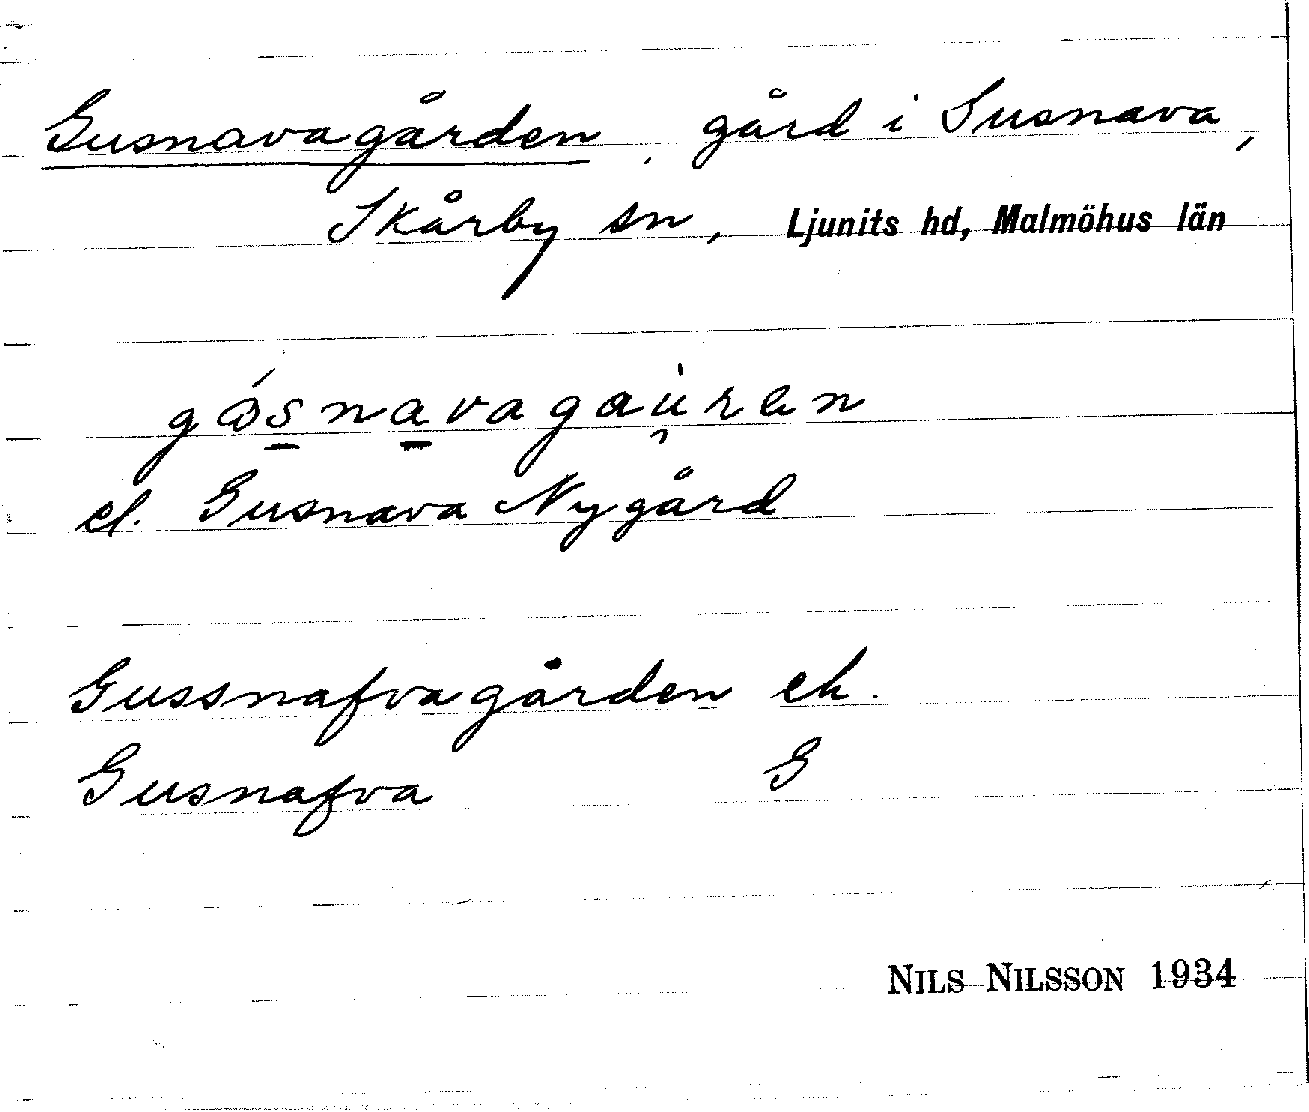 Gusnavagården, gård i Gusnava,
Skårby sn, Ljunits hd, Malmöhus län
el. Gusnava Nygård
Gussnafvagården ek.
Gusnafva G
NILS NILSSON 1934